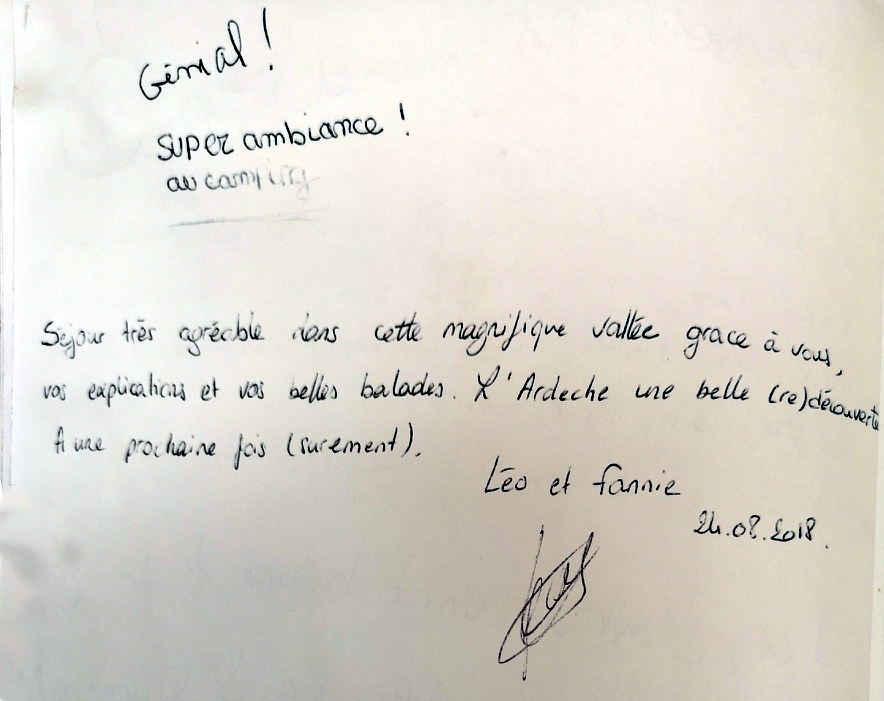 Génial !
SUPER ambiance !
au camping
Séjour très agréable dans cette magnifique vallée grace à vous,
vos explications et vos belles balades. L'Ardeche une belle (re)découverte
A une prochaine fois (surement).
Léo et Fannie
24.08.2018.